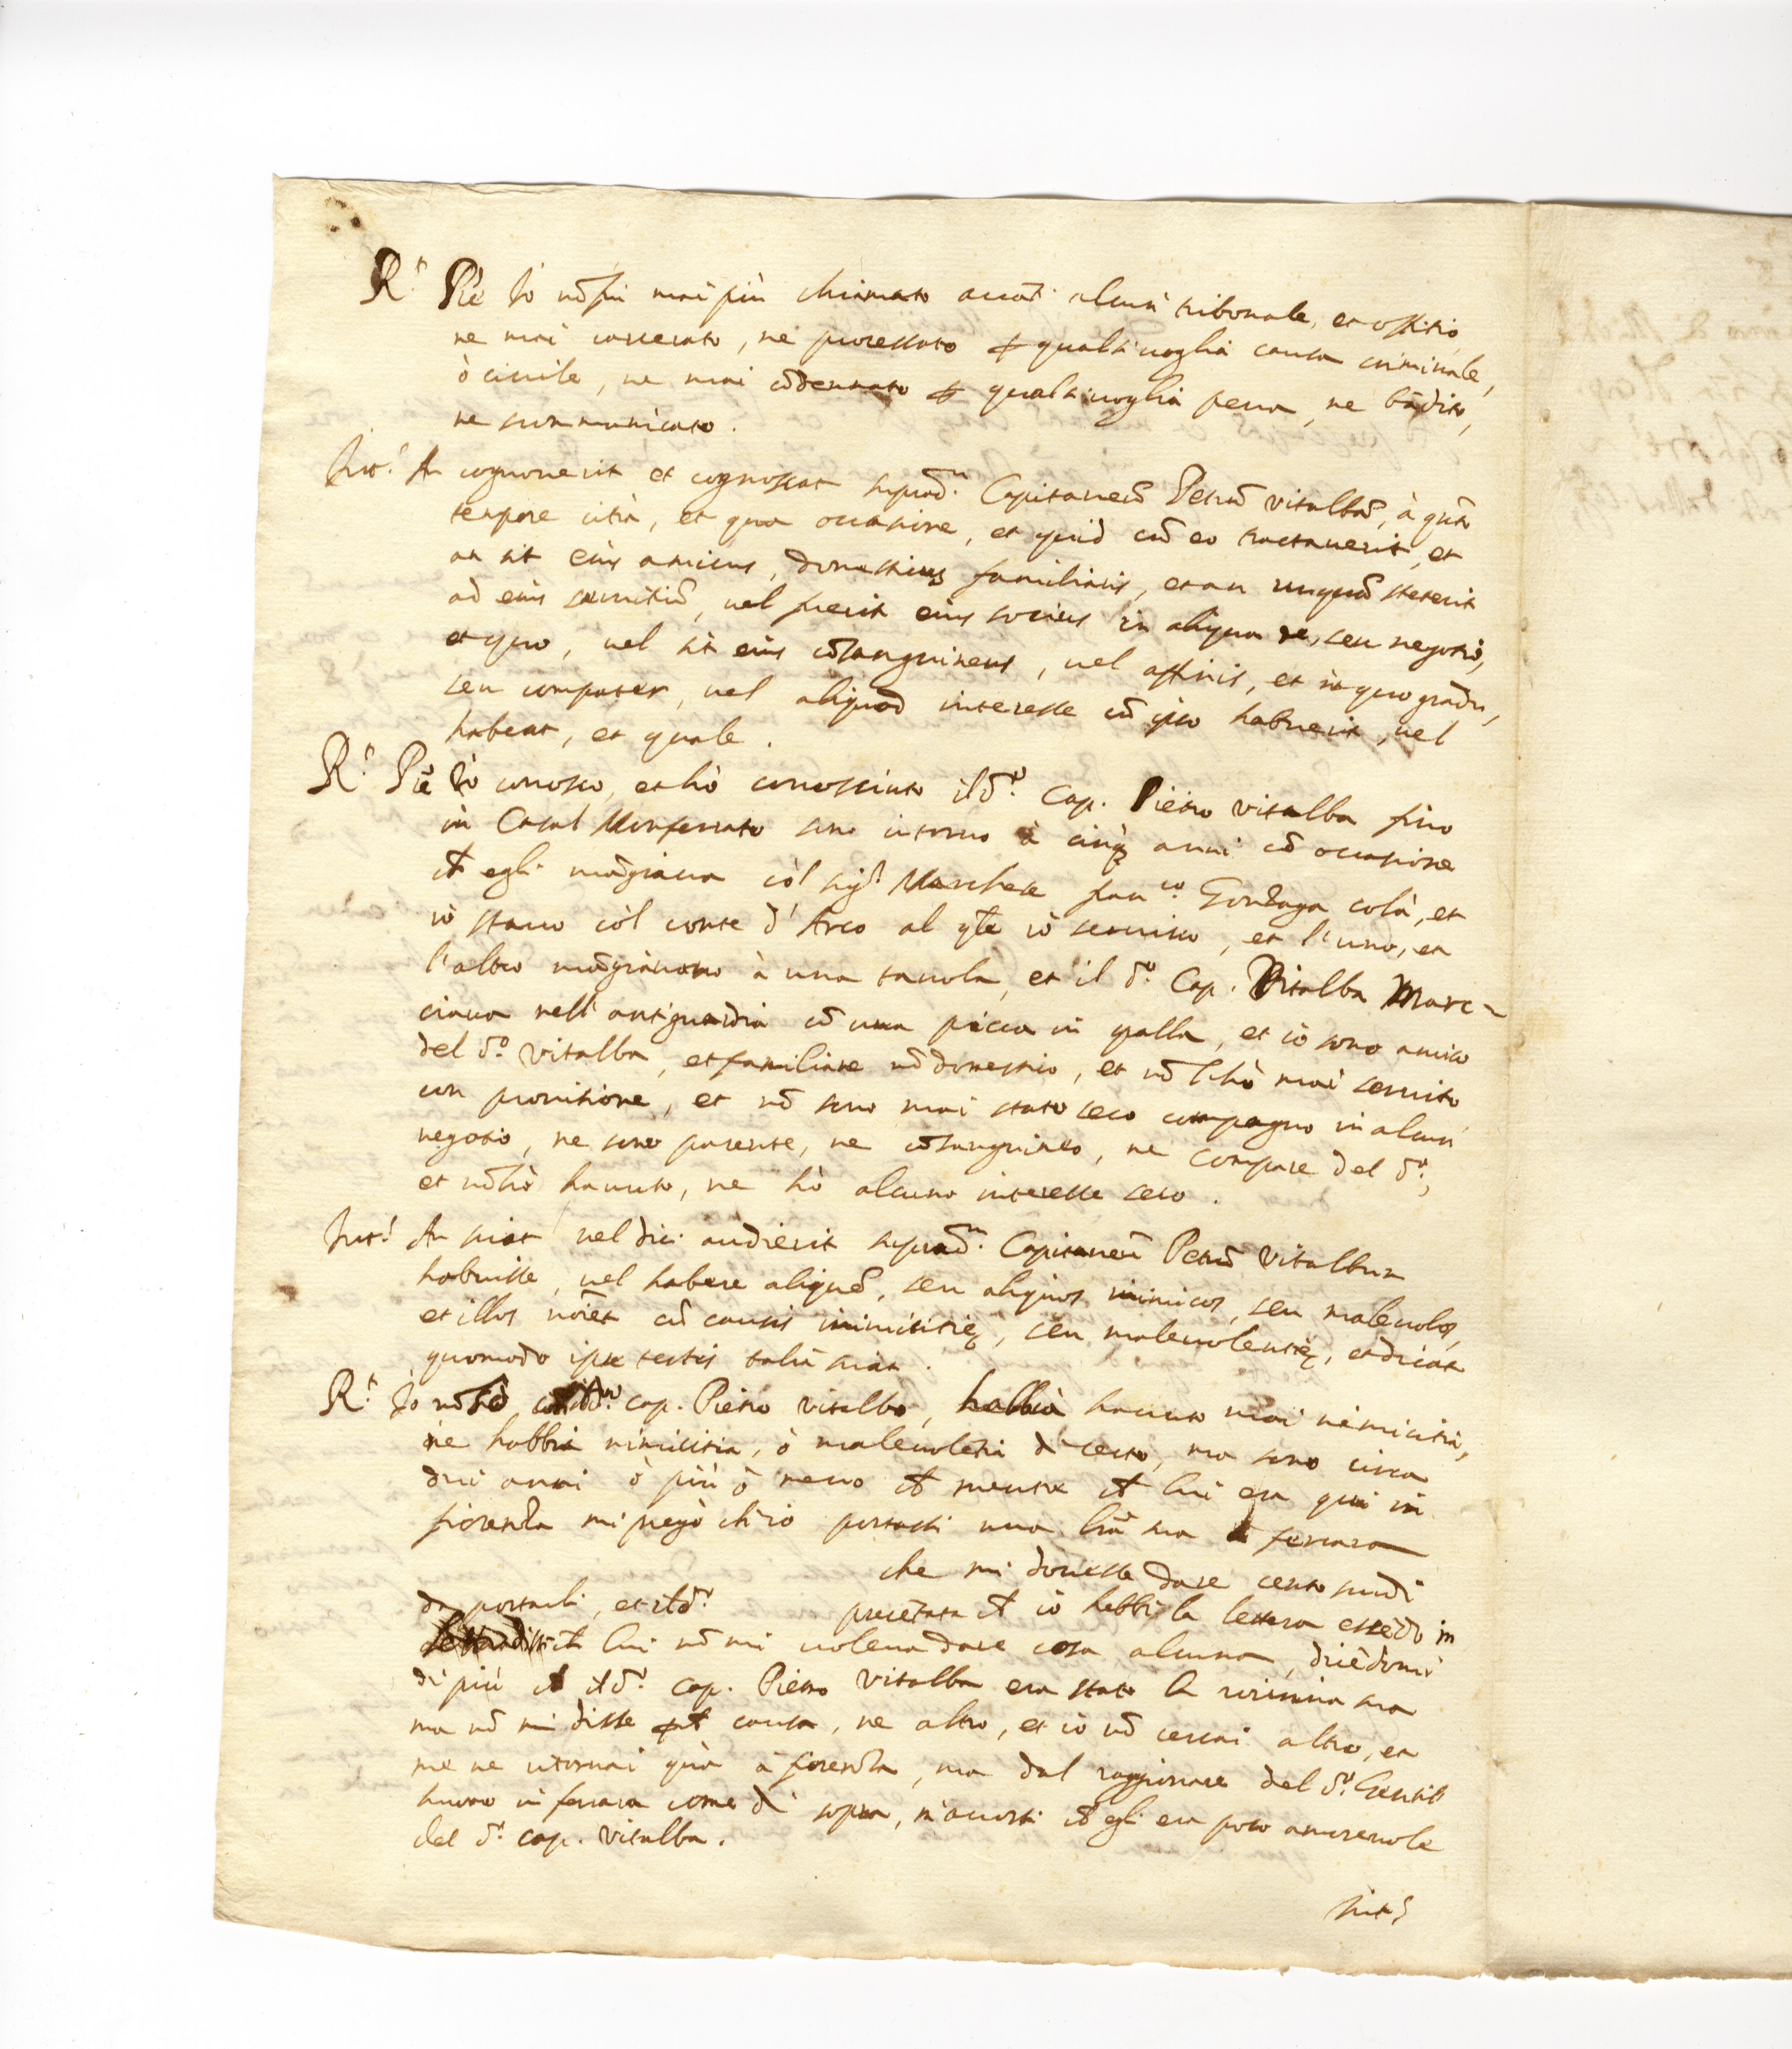 R.t Più Io nõ fui mai più chiamato auãti alcun tribonale, et offitio,
ne mai carcerato, ne processato p qualsiuoglia causa criminale,
ò ciuile, ne mai cõdennato p qualsiuoglia pena, ne bãdito,
ne scommunicato.
Int.s An cognouerit et cognoscat suprad.m Capitaneũ Petrũ Vitalbã, à quãto
tempore citra, et qua occasione, et quid cũ eo tractauerit, et
an sit eius amicus, domesticus familiaris, et an unquã steterit
ad eius seruitiũ, uel fuerit eius socius in aliqua re, seu negotio,
et quo, uel sit eius cõsanguineus, uel affinis, et in quo gradu,
seu compater, uel aliquod interesse cũ ipso habuerit, uel
habeat, et quale.
R.t Più Io conosco, et hò conosciuto il d.o Cap. Pietro Vitalba fino
in Casal Monferrato sino intorno à cinq; anni cõ occasione
ch egli mãgiaua cõl sig.r Marchese Fran.co Gonzaga colà, et
iò stauo còl conte d'Arco al q̃le iò seruiuo, et l'uno, et
l'altro mãgiauono à una tauola, et il d.o Cap. Vitalba Marc-
ciaua nell'antiguardia cõ una picca in spalla, et iò sono amico
del d.o Vitalba, et familiare nõ domestico, et nõ l'hò mai seruito
con prouisione, et nõ sono mai stato seco compagno in alcun
negotio, ne sono parente, ne cõsanguineo, ne compare del d.o,
et nõ hò hauuto, ne hò alcuno interesse seco.
Int.s An sciat uel dici audierit suprad.m Capitaneũ Petrũ Vitalbum
habuisse, uel habere aliquẽ, seu aliquos inimicos, seu maleuolos,
et illos nõiet cũ causis inimicitię, seu maleuolentię, et dicat
quomodo ipse testis talia sciat.
R.t Io nõ sò cap. Pietro Vitalba, habbia hauuto mai nimicitia,
ne habbia nimicitia, ò maleuolẽtia di certo, ma sono circa
dui anni ò più ò meno ch mentre ch lui era qui in
fiorenza mi pregò ch'io portassi una lrã sua à ferrara
che mi douesse dare cento scudi
da portarli, et il d.o presẽtata ch iò hebbi la lettera essẽdo in
lui nõ mi uoleua dare cosa alcuna, dicẽdomi
di più ch il d.o cap. Pietro Vitalba era stato la rouina sua
ma nõ mi disse p ch causa, ne altro, et iò nõ cercai altro, et
me ne ritornai quà à fiorenza, ma dal raggionare del d.o
in ferrara come di sopra, m'accorsi ch egli era poco amoreuole
del d.o cap. Vitalba.
Int.s